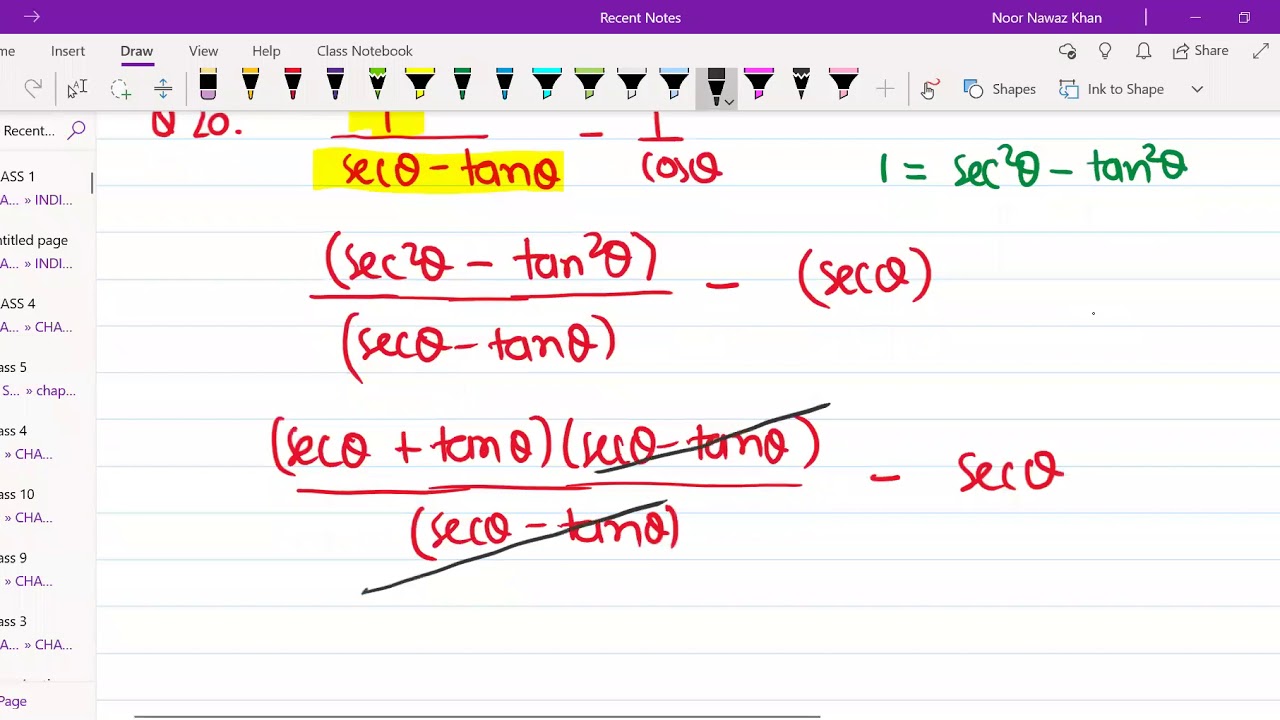 Recent Notes
Noor Nawaz Khan
me Insert Draw View Help Class Notebook
Share
Shapes
Ink to Shape
Recent...
ASS 1
A... » INDI...
ntitled page
A... » INDI...
ASS 4
A... » CHA...
ass 5
S... » chap...
ass 4
» CHA...
ass 10
» CHA...
ass 9
» CHA...
ass 3
A... » CHA...
Page
Q 20. 1/(secθ - tanθ) - 1/cosθ
1 = sec²θ - tan²θ
(sec²θ - tan²θ)/(secθ - tanθ) - (secθ)
(secθ + tanθ)(secθ - tanθ)/(secθ - tanθ) - secθ